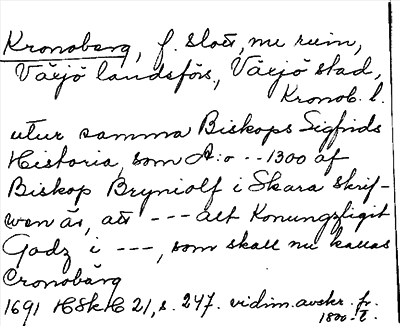 Kronoberg, f. slott, nu ruin,
Växjö landsförs., Växjö stad,
Kronob. l.
utur samma Biskops Sigfrids
Historia, som A:o -- 1300 af
Biskop Bryniolf i Skara skrif-
wen är, att --- alt Konungzligit
Godz i ---, som skall nu kallas
Cronobärg
1691 HSkH 21, s. 247. vidim. avskr. fr.
1800-t.